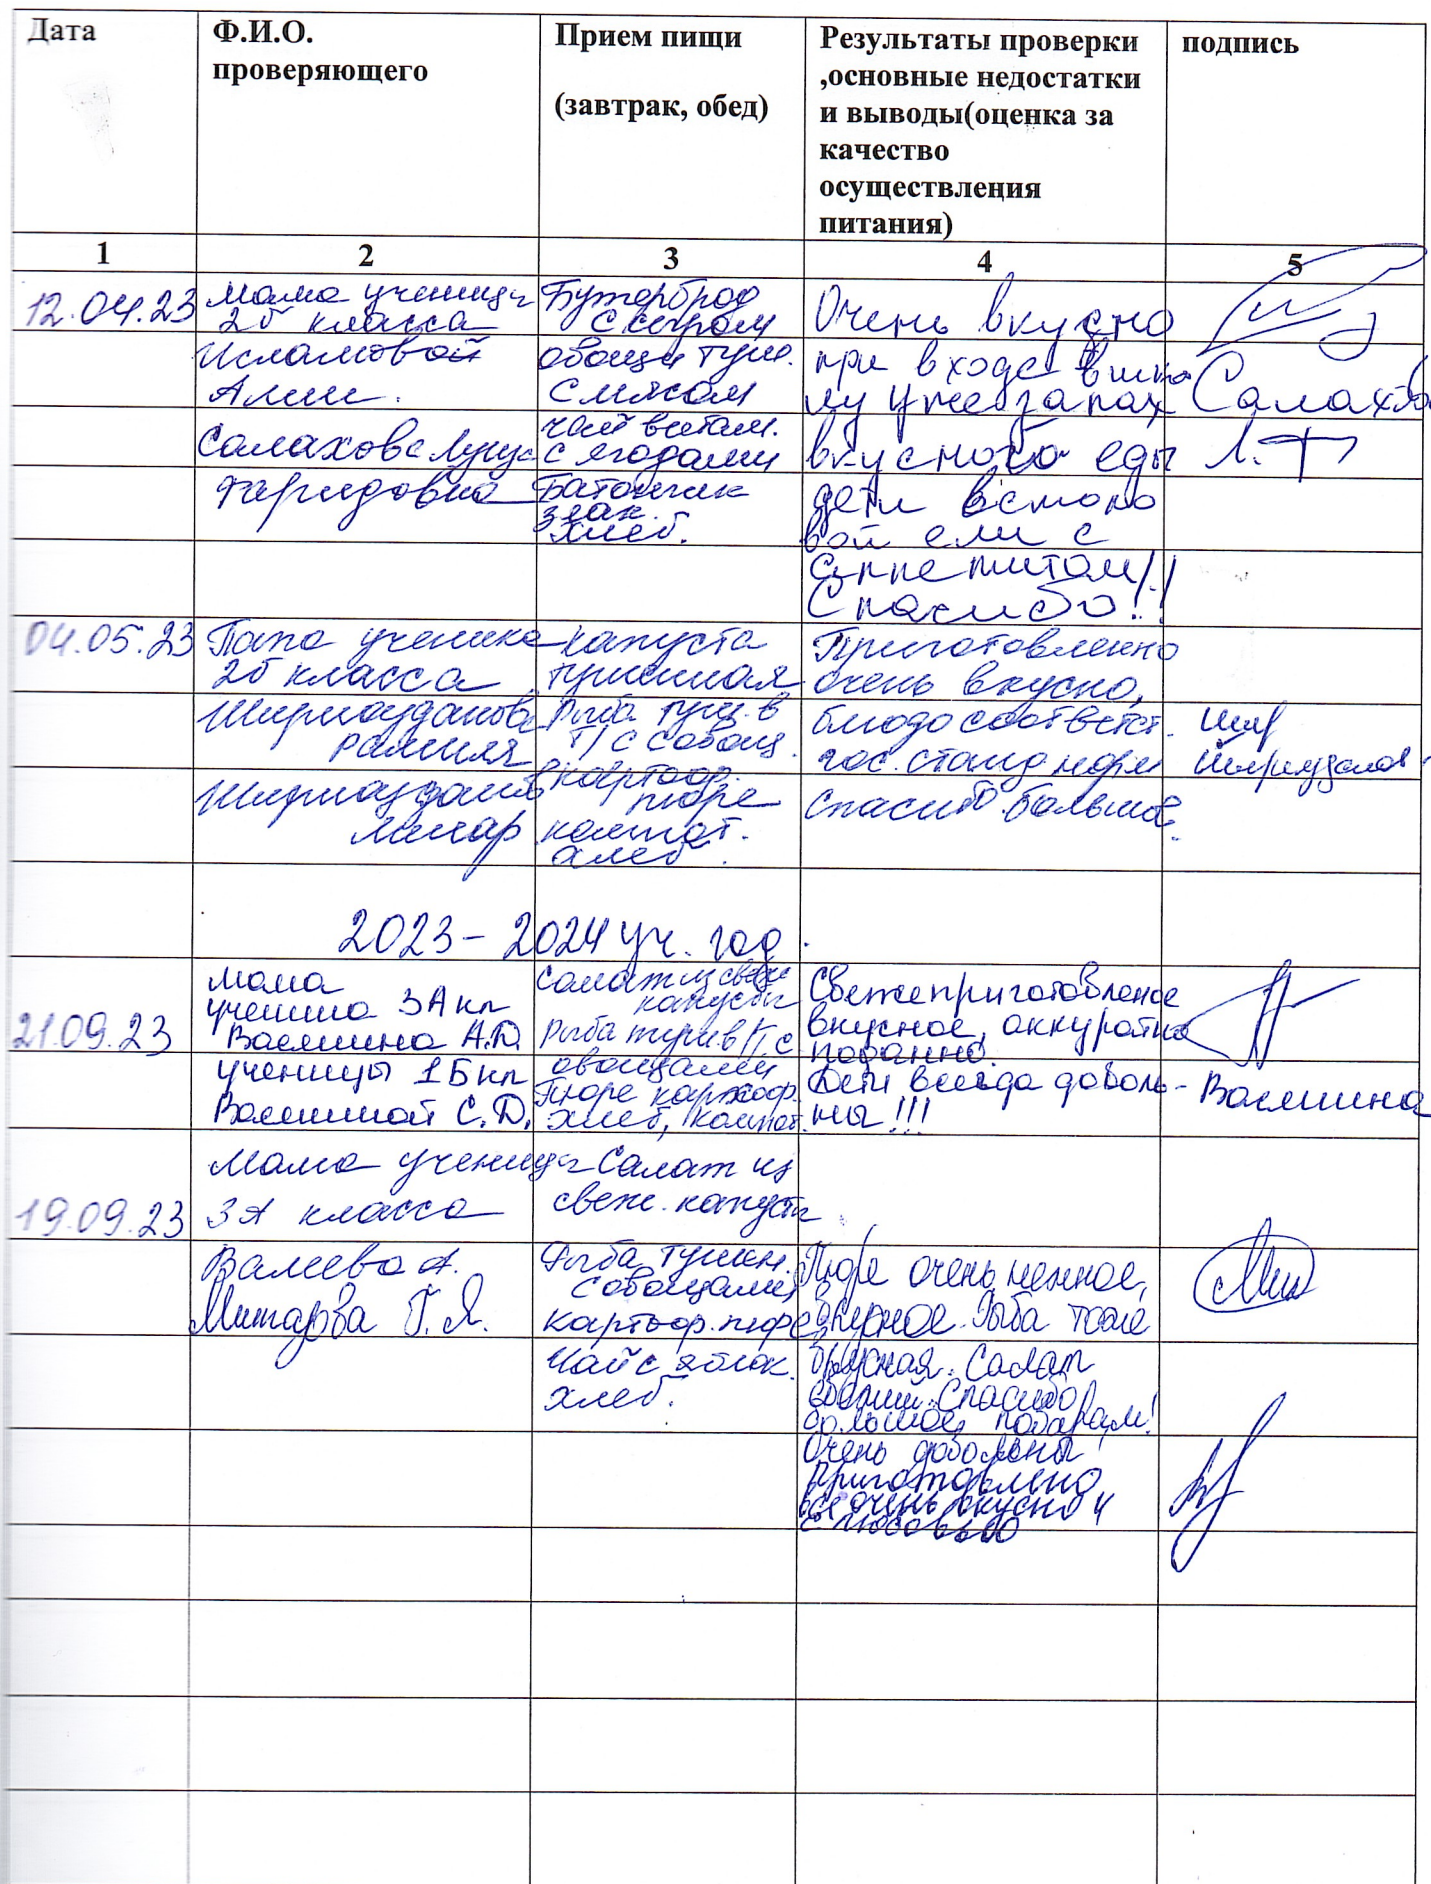 Дата
Ф.И.О.
проверяющего
Прием пищи
(завтрак, обед)
Результаты проверки
,основные недостатки
и выводы(оценка за
качество
осуществления
питания)
подпись
1
2
3
4
5
12.04.23
мама ученицы
2б класса
Исламовой
Алии.
Салахова
Фаридовна
Бутерброд
с сыром
овощи туш.
с мясом
чай витам.
с ягодами
Батончик
злак.
хлеб.
Очень вкусно
при входе в шко
лу уже запах
вкусного еды
дети в столо
вой ели с
аппетитом!!
Спасибо!!
Салахова
Л.Ф
04.05.23
Папа ученика
2б класса
капуста
тушенная
Рыба туш. в
т/с с овощ.
картоф.
пюре
компот.
хлеб.
Приготовленно
очень вкусно,
блюдо соответст.
гос. станд норм
Спасибо большое.
2023-2024 уч. год.
21.09.23
мама
ученика 3А кл
Валишина А.Д.
ученицы 1Б кл
Валишиной С.Д.
Салат из свеж
капусты
Рыба туш в т.с
овощами
Пюре картоф.
хлеб, компот.
Свежеприготовленое
вкусное, аккуратно
поданно.
Дети всегда доволь-
ны!!!
Валишина
19.09.23
Мама ученицы
3А класса
Валиева А.
Г.Я.
Салат из
свеж. капусты
Рыба тушен.
с овощами
картоф. пюре
Чай с яблок.
хлеб.
Пюре очень нежное,
вкусное. Рыба тоже
вкусная. Салат
свежий. Спасибо
большое поварам!
Очень довольны
Приготовлено
все очень вкусно и
с любовью